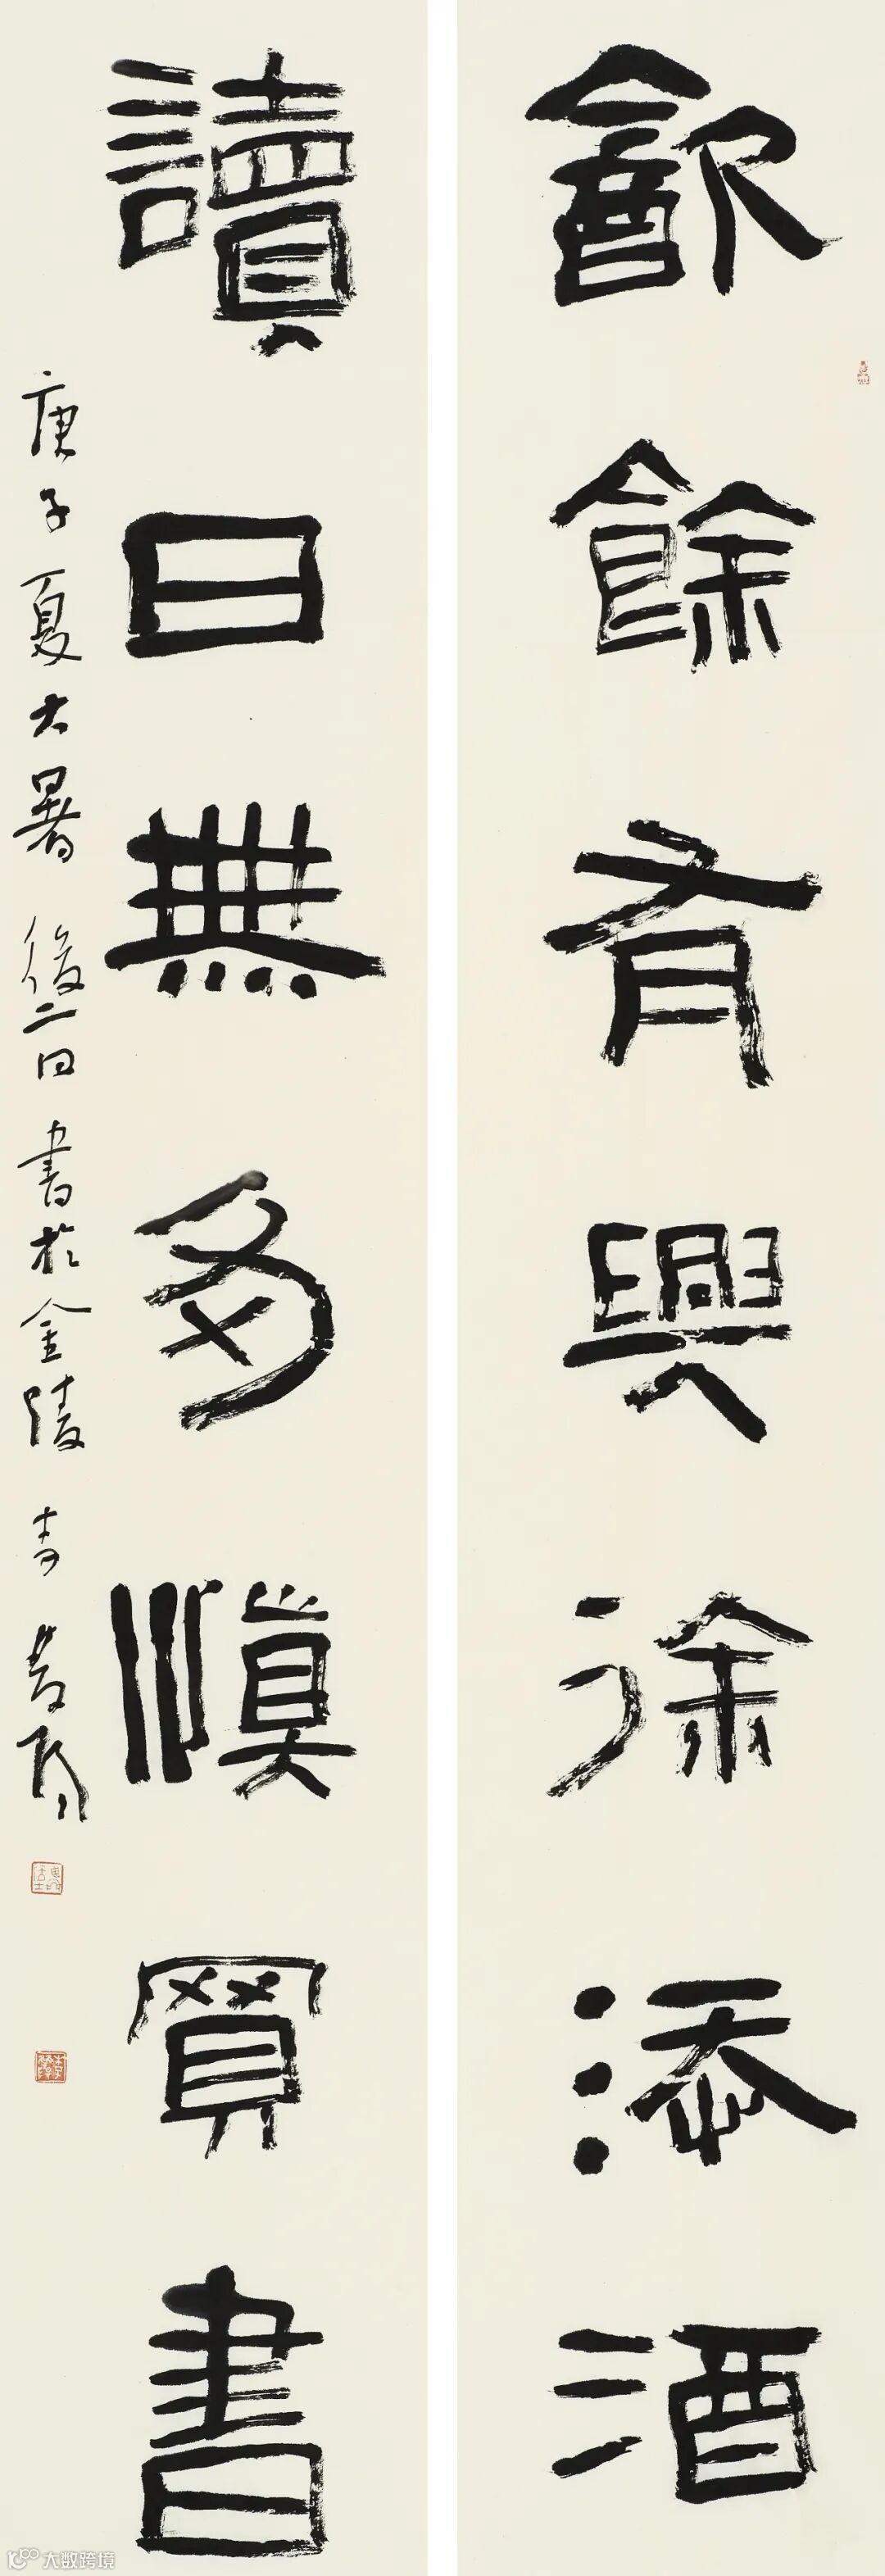 飲餘有興徐添酒
讀日無多慎買書
庚子夏大暑後二日書於金陵
大数跨境